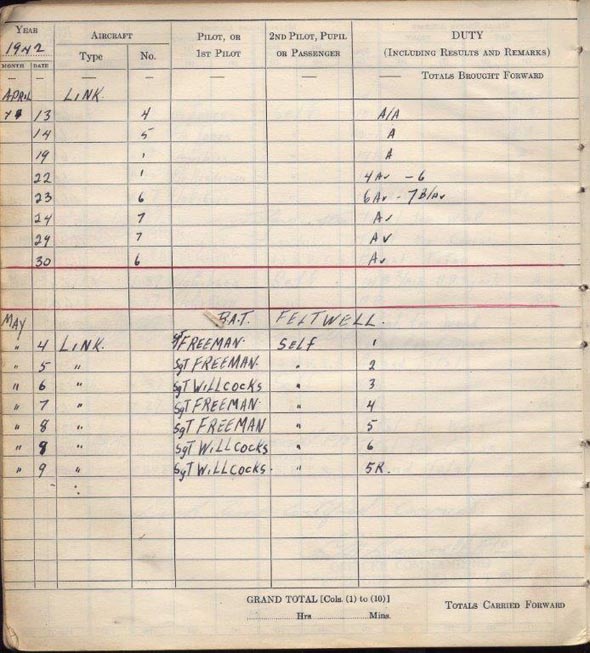 YEAR AIRCRAFT PILOT, OR 2ND PILOT, PUPIL DUTY
1942 Type No. 1ST PILOT OR PASSENGER (INCLUDING RESULTS AND REMARKS)
MONTH DATE
— — — — — — — TOTALS BROUGHT FORWARD
APRIL LINK.
13 4 A/A
14 5 A
19 ' A
22 ' 4Av - 6
23 6 6Av - 7B/Av
24 7 Av
29 7 Av
30 6 Av
MAY B.A.T. FELTWELL.
" 4 LINK. SgT FREEMAN. SELF 1
" 5 " SgT FREEMAN. " 2
" 6 " SgT WILLCOCKS " 3
" 7 " SgT FREEMAN. " 4
" 8 " SgT FREEMAN " 5
" 8 " SgT WILLCOCKS " 6
" 9 " SgT WILLCOCKS. " 5R.
GRAND TOTAL [Cols. (1) to (10)] TOTALS CARRIED FORWARD
Hrs. Mins.